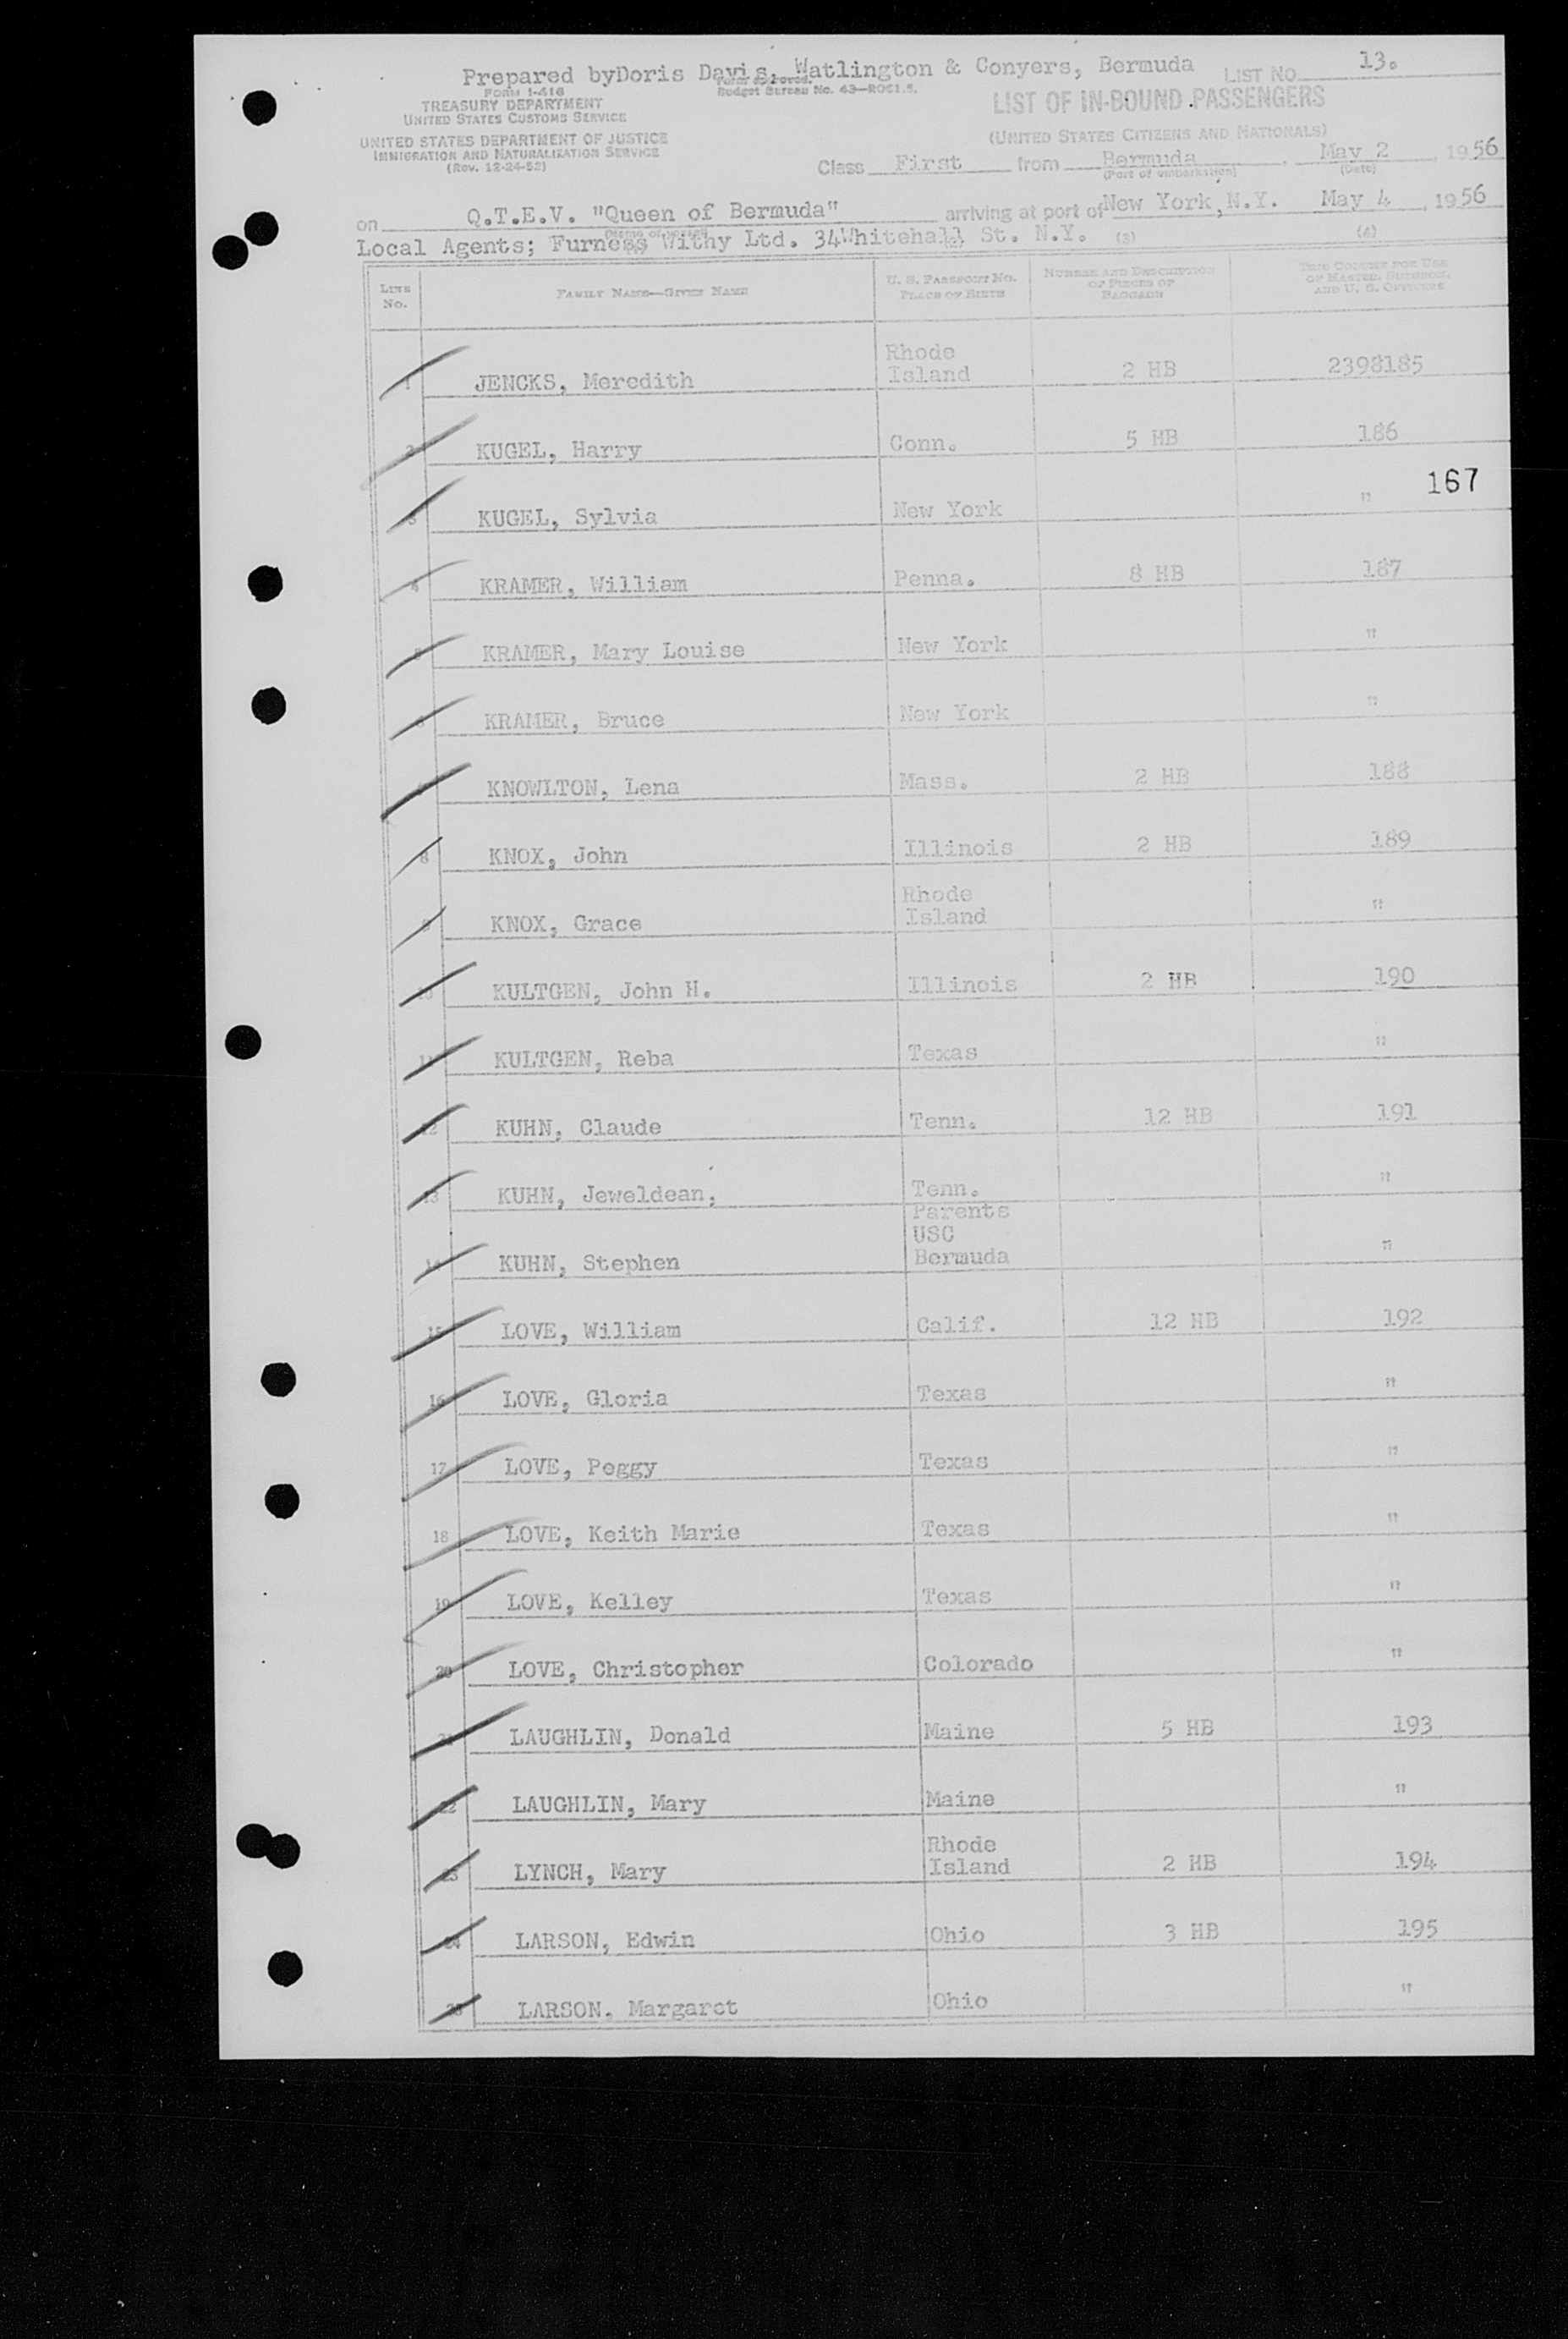 Prepared byDoris Davis, Watlington & Conyers, Bermuda LIST NO. 13.
FORM I-418 Form approved.
TREASURY DEPARTMENT Budget Bureau No. 43—R061.5.
UNITED STATES CUSTOMS SERVICE LIST OF IN-BOUND PASSENGERS
UNITED STATES DEPARTMENT OF JUSTICE (UNITED STATES CITIZENS AND NATIONALS)
IMMIGRATION AND NATURALIZATION SERVICE
(Rev. 12-24-52)
Class First from Bermuda, May 2, 1956
(Port of embarkation) (Date)
on Q.T.E.V. "Queen of Bermuda" arriving at port of New York, N.Y. May 4, 1956
(Name of vessel)
Local Agents; Furness Withy Ltd. 34Whitehall St. N.Y. (3) (4)
LINE NO. FAMILY NAME—GIVEN NAME U. S. PASSPORT NO. PLACE OF BIRTH NUMBER AND DESCRIPTION OF PIECES OF BAGGAGE THIS COLUMN FOR USE OF MASTER, SURGEON, AND U. S. OFFICERS
1 JENCKS, Meredith Rhode Island 2 HB 2398185
2 KUGEL, Harry Conn. 5 HB 186
167
3 KUGEL, Sylvia New York "
4 KRAMER, William Penna. 8 HB 187
5 KRAMER, Mary Louise New York "
6 KRAMER, Bruce New York "
KNOWLTON, Lena Mass. 2 HB 188
8 KNOX, John Illinois 2 HB 189
9 KNOX, Grace Rhode Island "
10 KULTGEN, John H. Illinois 2 HB 190
11 KULTGEN, Reba Texas "
12 KUHN, Claude Tenn. 12 HB 191
13 KUHN, Jeweldean, Tenn. "
14 KUHN, Stephen Parents USC Bermuda "
15 LOVE, William Calif. 12 HB 192
16 LOVE, Gloria Texas "
17 LOVE, Peggy Texas "
18 LOVE, Keith Marie Texas "
19 LOVE, Kelley Texas "
20 LOVE, Christopher Colorado "
21 LAUGHLIN, Donald Maine 5 HB 193
22 LAUGHLIN, Mary Maine "
23 LYNCH, Mary Rhode Island 2 HB 194
24 LARSON, Edwin Ohio 3 HB 195
25 LARSON, Margaret Ohio "